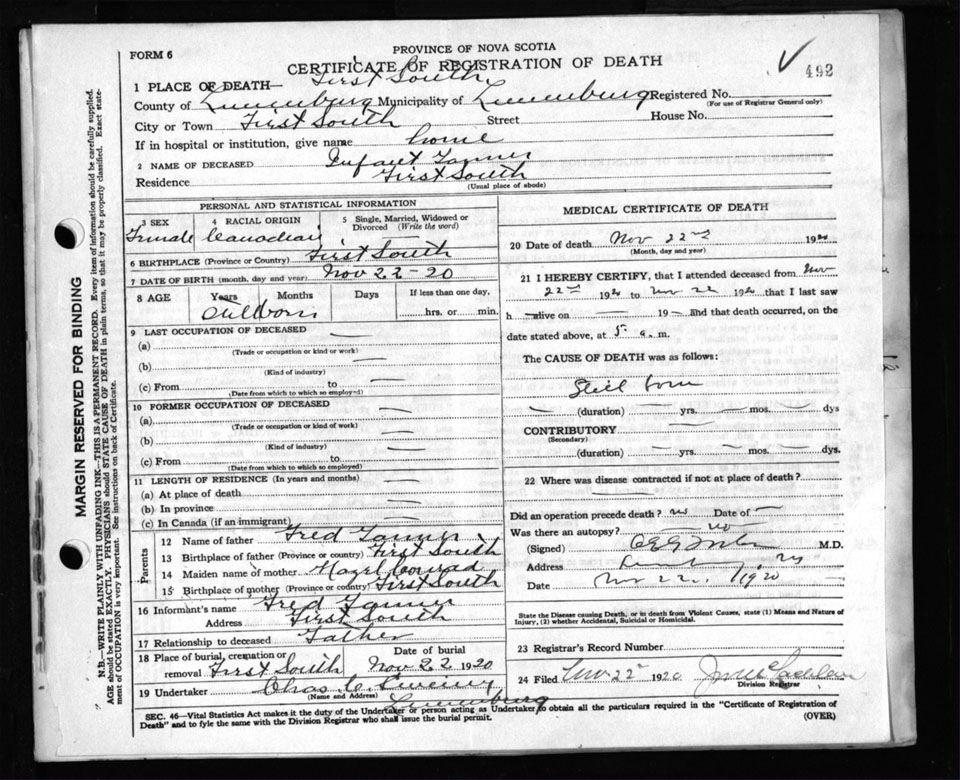 FORM 6
PROVINCE OF NOVA SCOTIA
CERTIFICATE OF REGISTRATION OF DEATH
492
1 PLACE OF DEATH— First South
County of Lunenburg Municipality of Lunenburg Registered No.
(For use of Registrar General only)
City or Town First South Street House No.
If in hospital or institution, give name home
2 NAME OF DECEASED Infant Tanner
Residence First South
(Usual place of abode)
PERSONAL AND STATISTICAL INFORMATION
3 SEX 4 RACIAL ORIGIN 5 Single, Married, Widowed or Divorced (Write the word)
Female Canadian
6 BIRTHPLACE (Province or Country) First South
7 DATE OF BIRTH (month, day and year) Nov 22-20
8 AGE Years Months Days If less than one day,
Stillborn hrs. or min.
9 LAST OCCUPATION OF DECEASED —
(a)
(Trade or occupation or kind or work)
(b) —
(Kind of industry)
(c) From to —
(Date from which to which so employed)
10 FORMER OCCUPATION OF DECEASED
(a) —
(Trade or occupation or kind of work)
(b) —
(Kind of industry)
(c) From to —
(Date from which to which so employed)
11 LENGTH OF RESIDENCE (In years and months)
(a) At place of death —
(b) In province —
(c) In Canada (if an immigrant) —
Parents
12 Name of father Fred Tanner
13 Birthplace of father (Province or country) First South
14 Maiden name of mother Hazel Conrad
15 Birthplace of mother (Province or country) First South
16 Informant's name Fred Tanner
Address First South
17 Relationship to deceased Father
18 Place of burial, cremation or removal First South Date of burial Nov 22 1920
19 Undertaker Chas
(Name and Address) Lunenburg
MEDICAL CERTIFICATE OF DEATH
20 Date of death Nov 22nd 1920
(Month, day and year)
21 I HEREBY CERTIFY, that I attended deceased from Nov
22nd 1920 to Nov 22 1920 that I last saw
h — alive on — 19 — and that death occurred, on the
date stated above, at 5 a. m.
The CAUSE OF DEATH was as follows:
Still born
— (duration) — yrs. — mos. — dys
CONTRIBUTORY — —
(Secondary)
(duration) — yrs. — mos. — dys.
22 Where was disease contracted if not at place of death? —
Did an operation precede death? no Date of —
Was there an autopsy? no
(Signed) M.D.
Address Lunenburg, NS
Date Nov 22. 1920
State the Disease causing Death, or in death from Violent Causes, state (1) Means and Nature of
Injury, (2) whether Accidental, Suicidal or Homicidal.
23 Registrar's Record Number
24 Filed Nov 22 1920
Division Registrar
SEC. 46—Vital Statistics Act makes it the duty of the Undertaker or person acting as Undertaker to obtain all the particulars required in the "Certificate of Registration of
Death" and to fyle the same with the Division Registrar who shall issue the burial permit.
(OVER)
MARGIN RESERVED FOR BINDING
N.B.—WRITE PLAINLY WITH UNFADING INK—THIS IS A PERMANENT RECORD. Every item of information should be carefully supplied.
AGE should be stated EXACTLY. PHYSICIANS should STATE CAUSE OF DEATH in plain terms, so that it may be properly classified. Exact statement of OCCUPATION is very important. See instructions on back of Certificate.